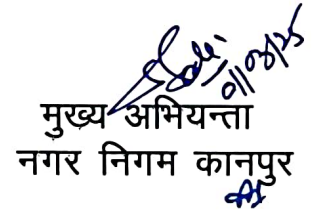 01/03/25
मुख्य अभियन्ता
नगर निगम कानपुर